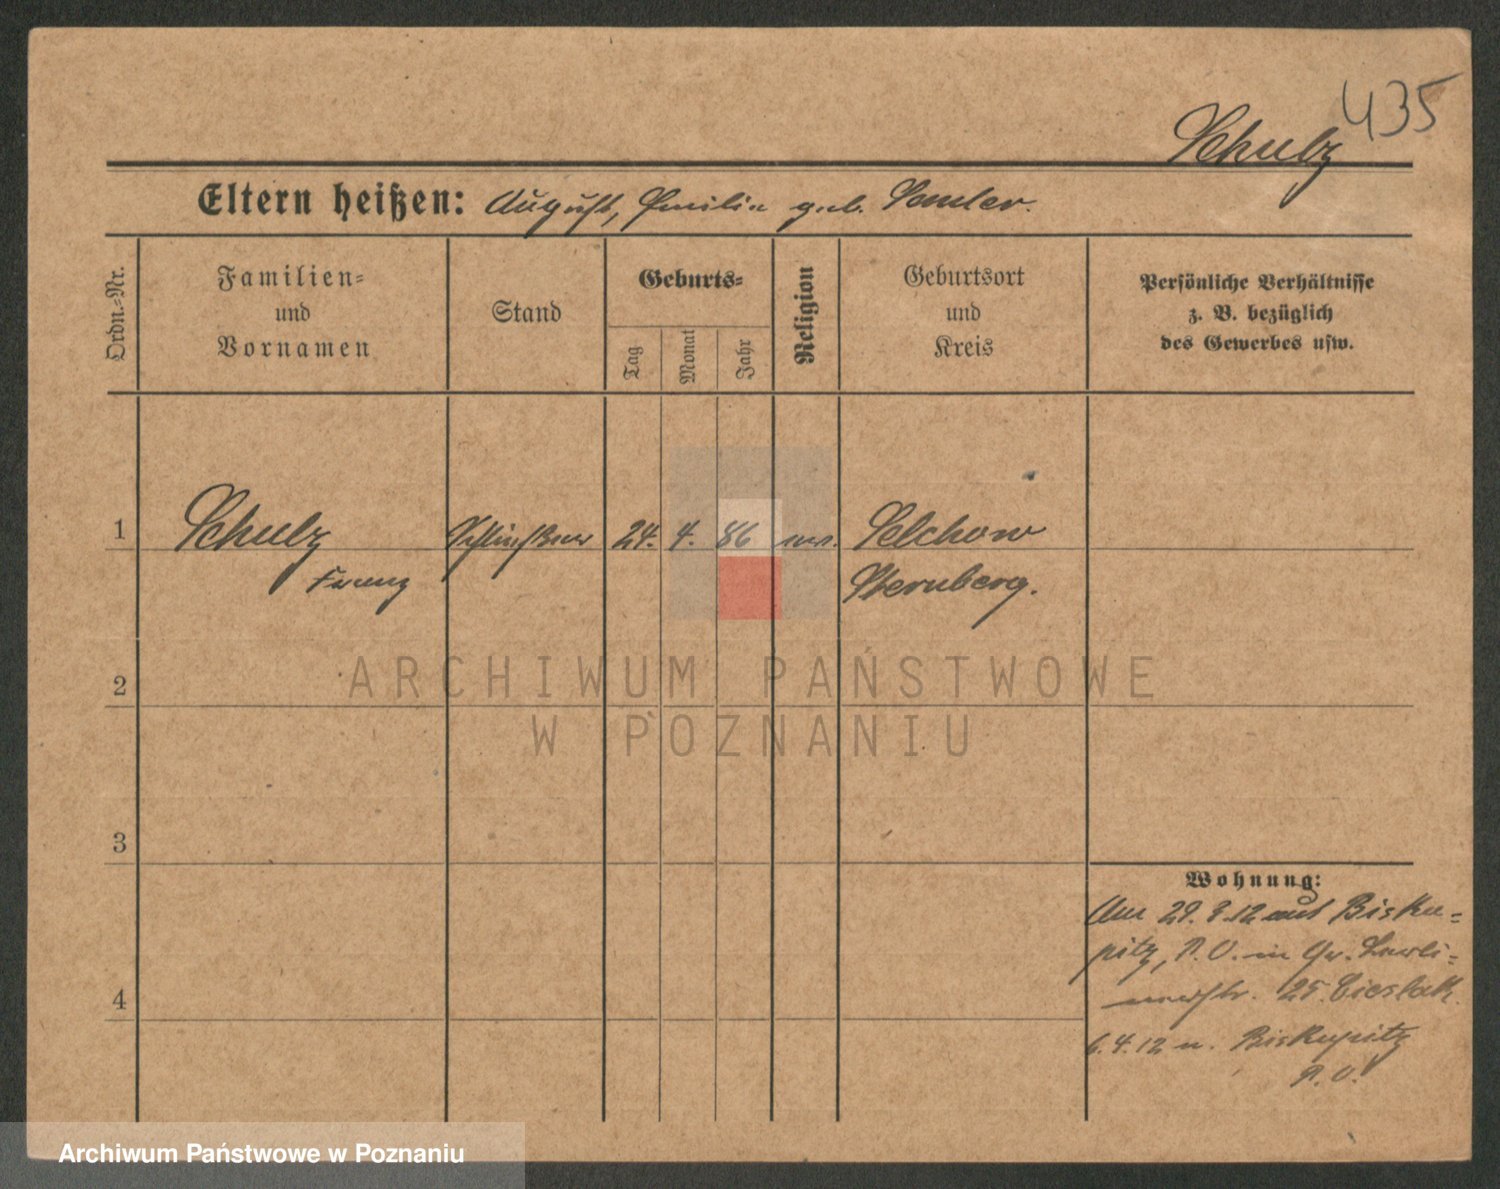 435
Schulz
Eltern heißen: August, Emilie geb. Semler.
Ordn.-Nr.
Familien-
und
Vornamen
Stand
Geburts-
Tag
Monat
Jahr
Religion
Geburtsort
und
Kreis
Persönliche Verhältnisse
z. B. bezüglich
des Gewerbes usw.
1
Schulz
Franz
24. 4. 86
Selchow
Sternberg.
2
3
4
ARCHIWUM PAŃSTWOWE
W POZNANIU
Wohnung:
Am 29. 3. 12 aus Bisku=
pitz, P. O. in Gr.
25. Cieslak.
6. 4. 12 n. Biskupitz
P. O.
Archiwum Państwowe w Poznaniu